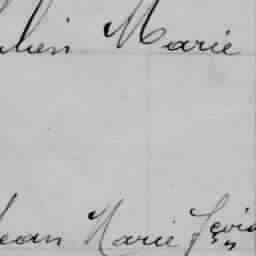 lien Marie
Jean Marie